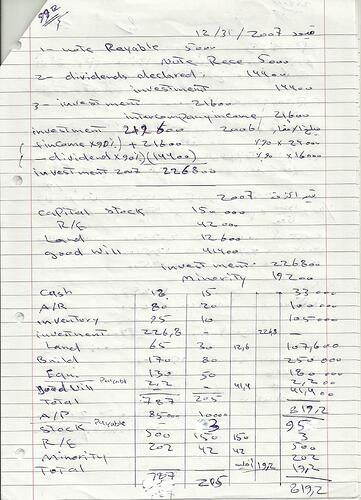 12/31/2007 قيود
1- note Payable 5000
Note Rece 5000
2- dividends declared. 14400
investment 14400
3- investment 21600
intercompany income 21600
investment 219600 2006
+ income x90%) + 21600 %90 x 24000
- dividend x90%) (14400) %90 x 16000
investment 2007 226800
2007
Capital stock 150 000
R/E 42 000
Land 12600
good will 41400
investment 226800
Minority 19200
Cash 18 15 33000
A/R 80 20 100000
inventory 95 10 105000
investment 226,8 - 226,8 -
Land 65 30 12,6 107,600
Build 170 80 250 000
Equ. 130 50 180 000
Payable 2,2 - 2,200
good will 41,4 41,400
Total 787 205 819,2
A/P 85000 10000 95
Payable 3 3
Stock 500 150 150 500
R/E 202 42 42 202
Minority 19,2 19,2
Total 787 205 819,2